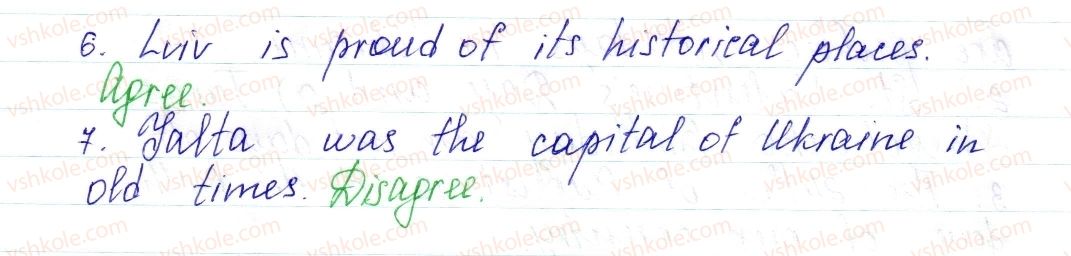 6. Lviv is proud of its historical places.
Agree.
7. Yalta was the capital of Ukraine in
old times. Disagree.